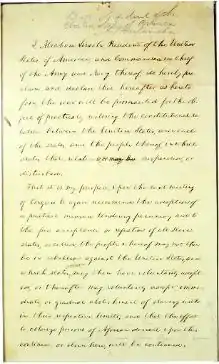 By the President of the
United States of America
A Proclamation
I, Abraham Lincoln, President of the United
States of America, and Commander-in-Chief
of the Army and Navy thereof, do hereby pro-
claim and declare that hereafter, as hereto-
fore, the war will be prosecuted for the ob-
ject of practically restoring the constitutional re-
lation between the United States, and each
of the states, and the people thereof, in which
states that relation is, or may be suspended, or
disturbed.
That it is my purpose, upon the next meeting
of Congress to again recommend the adoption of
a practical measure tendering pecuniary aid to
the free acceptance or rejection of all slave-
states, so called, the people whereof may not then
be in rebellion against the United States, and
which states, may then have voluntarily adopt-
ed, or thereafter may voluntarily adopt, imme-
diate, or gradual abolishment of slavery within
their respective limits; and that the effort
to colonize persons of African descent upon this
continent, or elsewhere, will be continued.